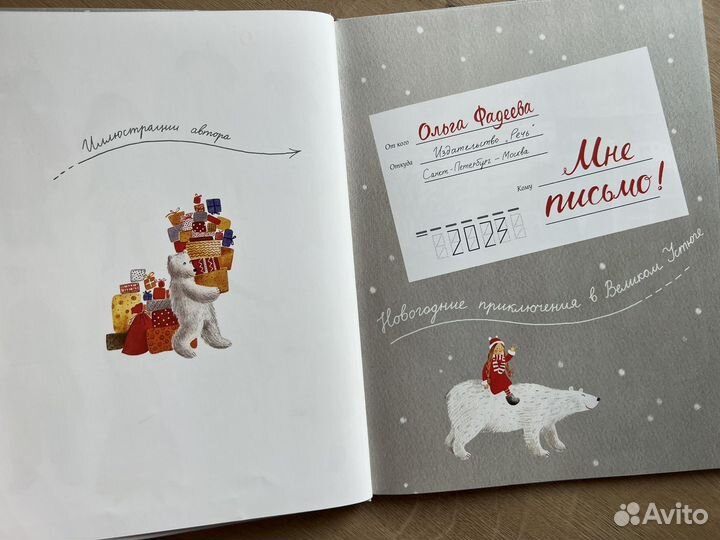 Иллюстрации автора
От кого Ольга Фадеева
Откуда Издательство „Речь"
Санкт-Петербург – Москва
Кому Мне
письмо!
2023
Новогодние приключения в Великом Устюге
Avito